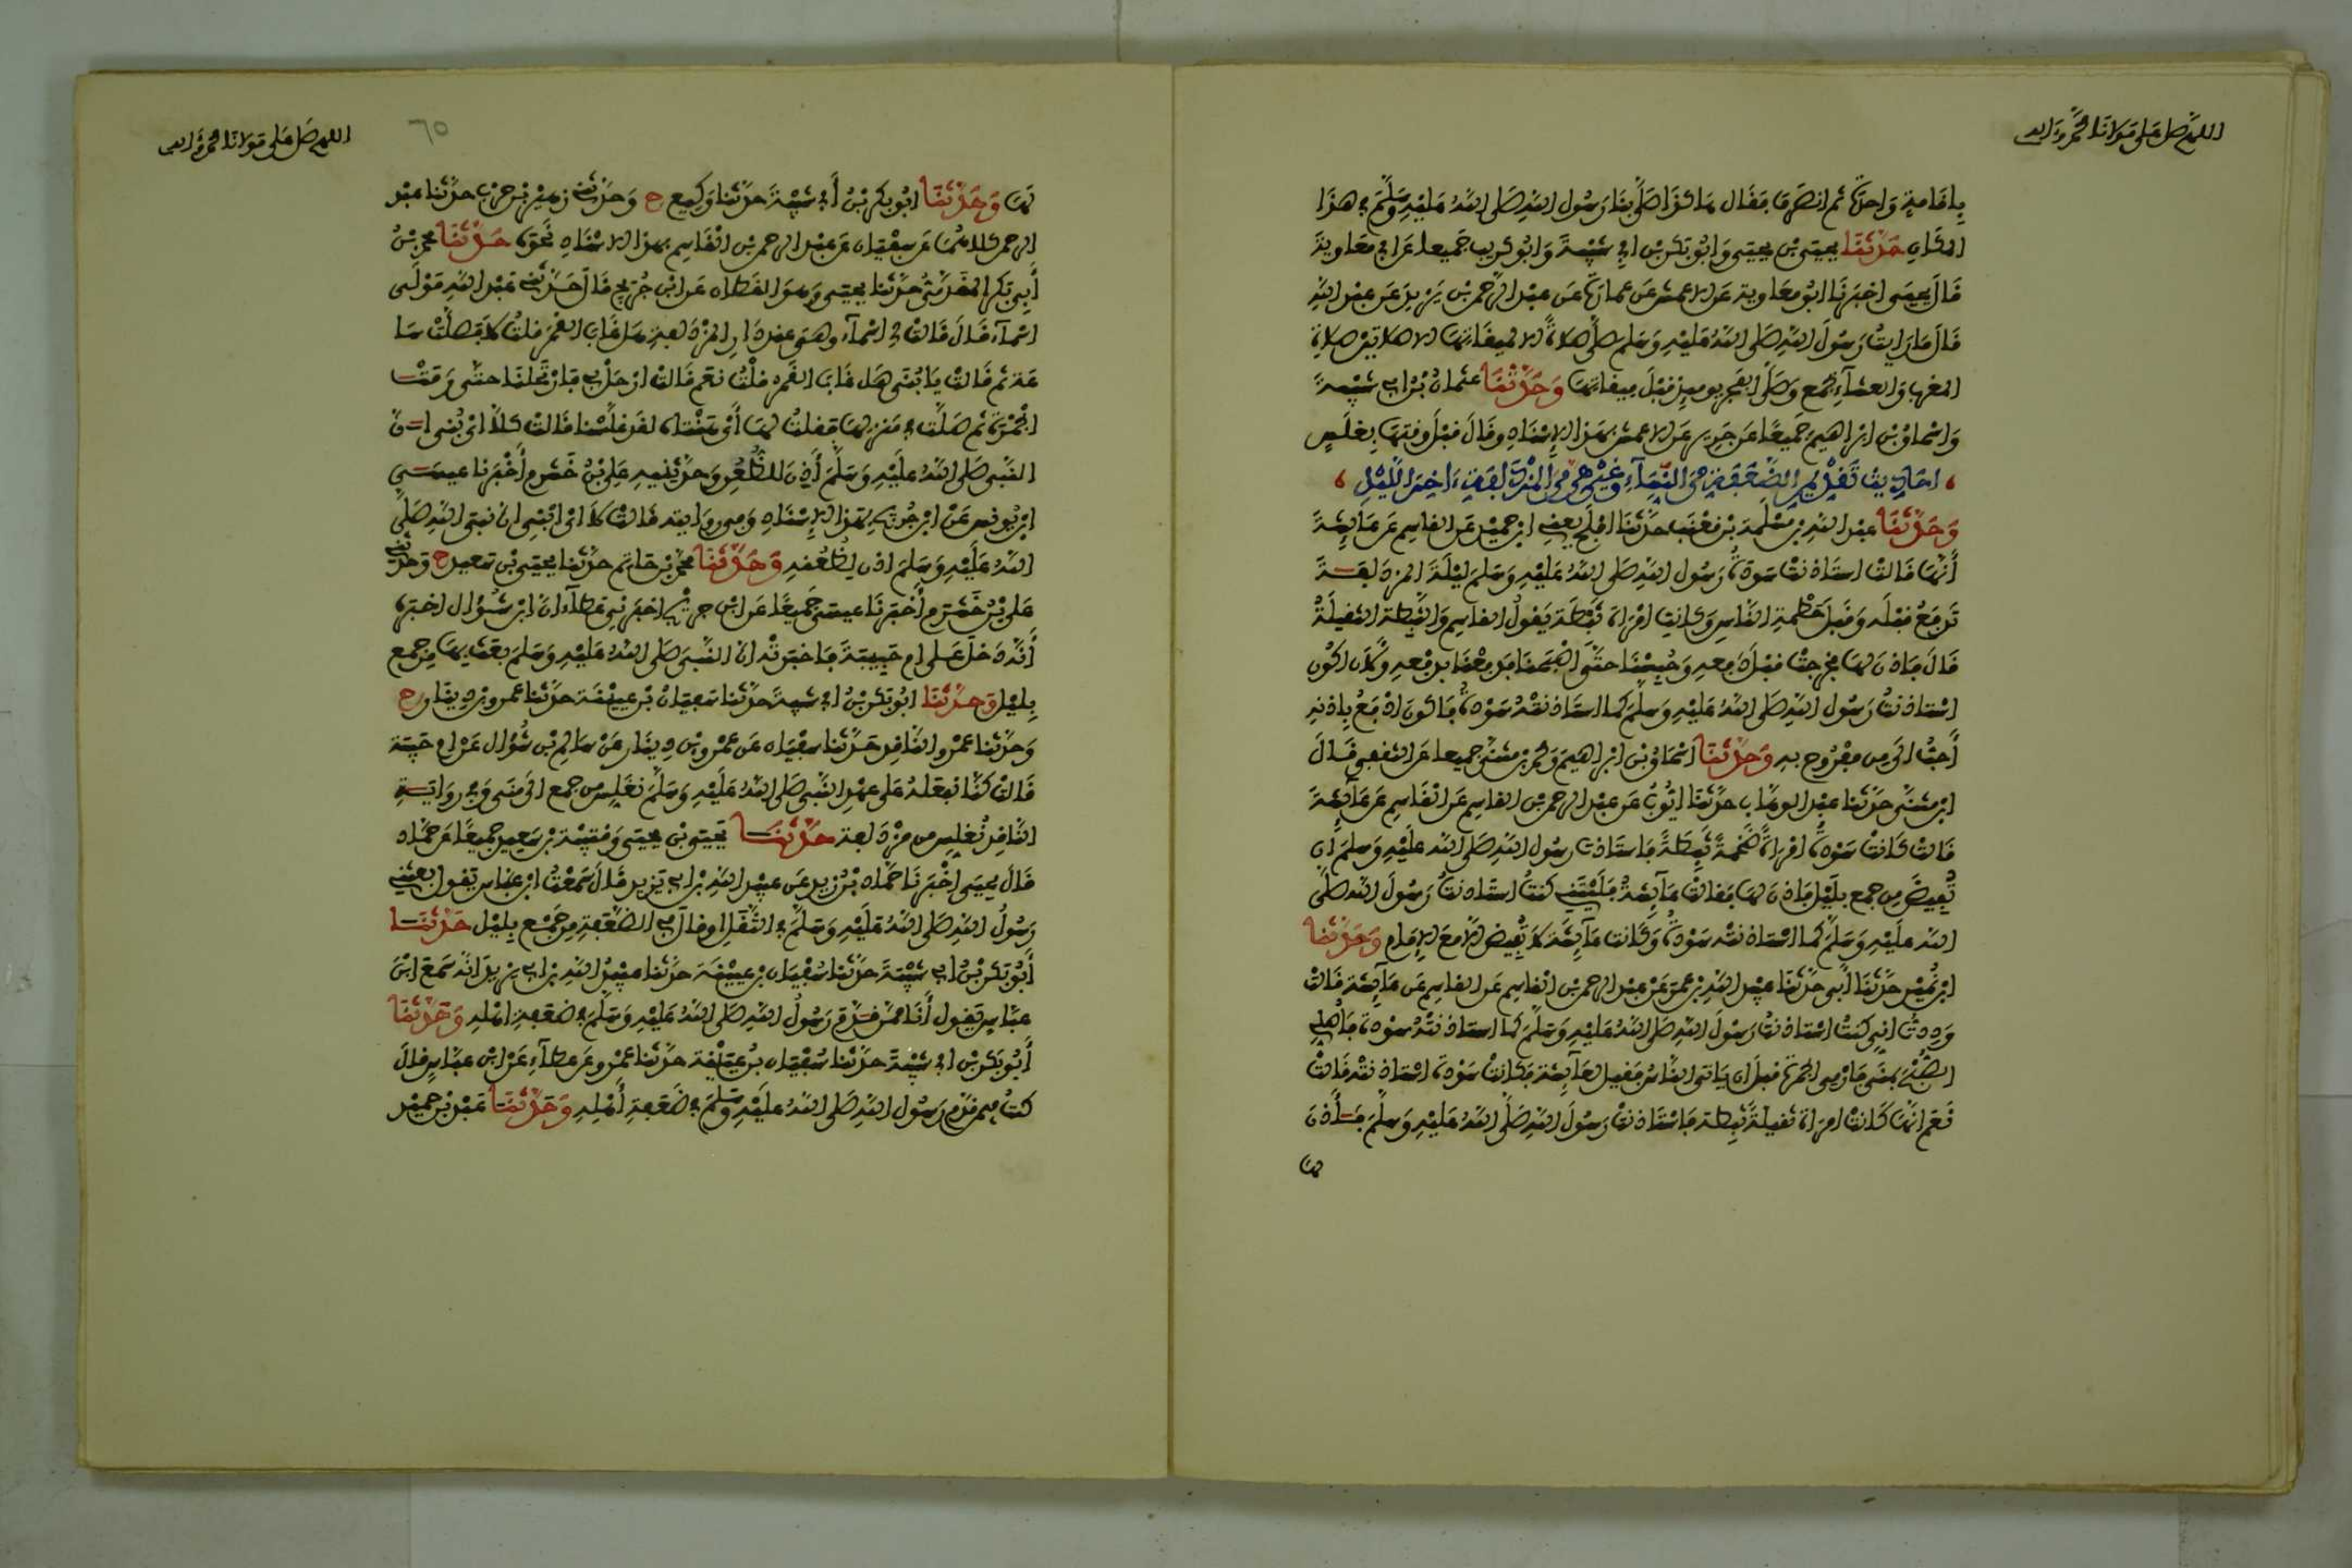 اللهم صل على مولانا محمد وءاله
بإقامة واحدة ثم انصرف فقال هاكذا صلى بنا رسول الله صلى الله عليه وسلم في هذا
المكان حدثنا يحيى بن يحيى وابو بكر بن ابي شيبة وابو كريب جميعا عن ابي معاوية
قال يحيى اخبرنا ابو معاوية عن الاعمش عن عمارة عن عبد الرحمن بن يزيد عن عبد الله
قال ما رايت رسول الله صلى الله عليه وسلم صلى صلاة الا لميقاتها الا صلاتين صلاة
المغرب والعشاء بجمع وصلى الفجر يوميذ قبل ميقاتها وحدثنا عثمان بن ابي شيبة
واسحاق بن ابراهيم جميعا عن جرير عن الاعمش بهذا الإسناد وقال قبل وقتها بغلس
احاديث تقديم الضعفة من النساء وغيرهن من المزدلفة ءاخر الليل
وحدثنا عبد الله بن مسلمة بن قعنب حدثنا افلح يعني ابن حميد عن القاسم عن عايشة
أنها قالت استاذنت سودة رسول الله صلى الله عليه وسلم ليلة المزدلفة
تدفع قبله وقبل حطمة الناس وكانت امراة ثبطة يقول القاسم والثبطة الثقيلة
قال فاذن لها فخرجت قبل دفعه وحبسنا حتى اصبحنا فدفعنا بدفعه ولان اكون
استاذنت رسول الله صلى الله عليه وسلم كما استاذنته سودة فاكون ادفع باذنه
أحب الي من مفروح به وحدثنا اسحاق بن ابراهيم ومحمد بن مثنى جميعا عن الثقفي قال
ابن مثنى حدثنا عبد الوهاب حدثنا ايوب عن عبد الرحمن بن القاسم عن القاسم عن عايشة
قالت كانت سودة امراة ضخمة ثبطة فاستاذنت رسول الله صلى الله عليه وسلم ان
تفيض من جمع بليل فاذن لها فقالت عايشة فليتني كنت استاذنت رسول الله صلى
الله عليه وسلم كما استاذنته سودة وكانت عايشة لا تفيض الا مع الإمام وحدثنا
ابن نمير حدثنا أبي حدثنا عبيد الله بن عمر عن عبد الرحمن بن القاسم عن القاسم عن عايشة قالت
وددت اني كنت استاذنت رسول الله صلى الله عليه وسلم كما استاذنته سودة فاصلي
الصبح بمنى فارمي الجمرة قبل ان ياتي الناس فقيل لعايشة فكانت سودة استاذنته قالت
نعم انها كانت امراة ثقيلة ثبطة فاستاذنت رسول الله صلى الله عليه وسلم فأذن
لها
اللهم صل على مولانا محمد وءاله
٦٥
لها وحدثنا ابو بكر بن أبي شيبة حدثنا وكيع ح وحدثني زهير بن حرب حدثنا عبد
الرحمن كلاهما عن سفيان عن عبد الرحمن بن القاسم بهذا الاسناد نحوه حدثنا محمد بن
أبي بكر المقدمي حدثنا يحيى وهو القطان عن ابن جريج قال حدثني عبد الله مولى
اسماء قال قالت لي اسماء وهي عند دار المزدلفة هل غاب القمر قلت لا فصلت سا
عة ثم قالت يا بني هل غاب القمر قلت نعم قالت ارحل بي فارتحلنا حتى رمت
الجمرة ثم صلت في منزلها فقلت لها أي هنتاه لقد غلسنا قالت كلا اي بني ان
النبي صلى الله عليه وسلم أذن للظعن وحدثنيه علي بن خشرم أخبرنا عيسى
ابن يونس عن ابن جريج بهذا الإسناد وفي روايته قالت لا اي ابني ان نبي الله صلى
الله عليه وسلم اذن لظعنه وحدثنا محمد بن حاتم حدثنا يحيى بن سعيد ح وحدثني
علي بن خشرم أخبرنا عيسى جميعا عن ابن جريج اخبرني عطاء ان ابن شوال اخبره
أنه دخل على ام حبيبة فاخبرته ان النبي صلى الله عليه وسلم بعث بها من جمع
بليل وحدثنا ابو بكر بن ابي شيبة حدثنا سفيان بن عيينة حدثنا عمرو بن دينار ح
وحدثنا عمرو الناقد حدثنا سفيان عن عمرو بن دينار عن سالم بن شوال عن ام حبيبة
قالت كنا نفعله على عهد النبي صلى الله عليه وسلم نغلس من جمع الى منى وفي رواية
الناقد نغلس من مزدلفة حدثنا يحيى بن يحيى وقتيبة بن سعيد جميعا عن حماد
قال يحيى اخبرنا حماد بن زيد عن عبيد الله بن ابي يزيد قال سمعت ابن عباس يقول بعثني
رسول الله صلى الله عليه وسلم في الثقل او قال في الضعفة من جمع بليل حدثنا
أبو بكر بن ابي شيبة حدثنا سفيان بن عيينة حدثنا عبيد الله بن ابي يزيد انه سمع ابن
عباس يقول أنا ممن قدم رسول الله صلى الله عليه وسلم في ضعفة اهله وحدثنا
أبو بكر بن ابي شيبة حدثنا سفيان بن عيينة حدثنا عمرو عن عطاء عن ابن عباس قال
كنت فيمن قدم رسول الله صلى الله عليه وسلم في ضعفة أهله وحدثنا عبد بن حميد